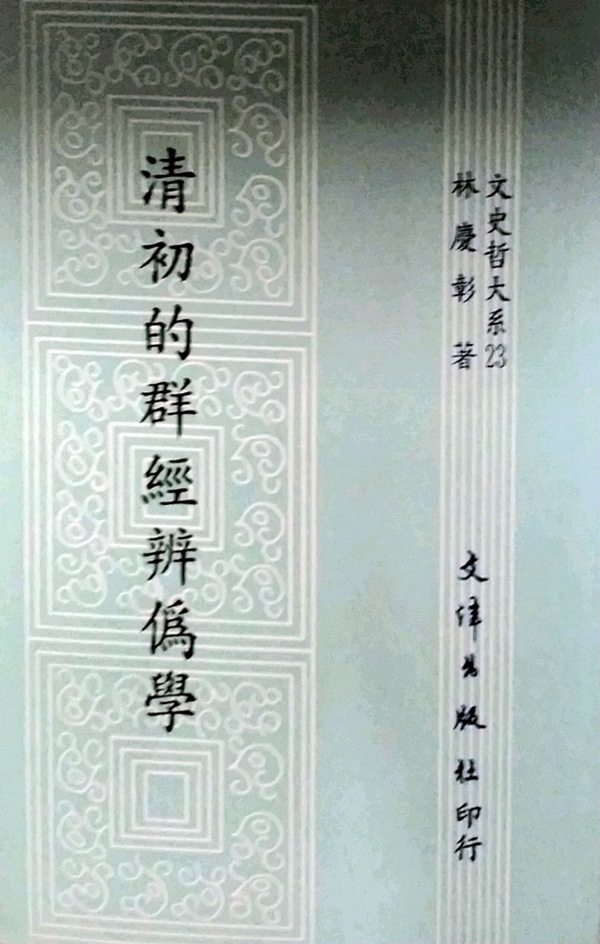 文史哲大系23
林慶彰 著
清初的群經辨偽學
文津出版社印行